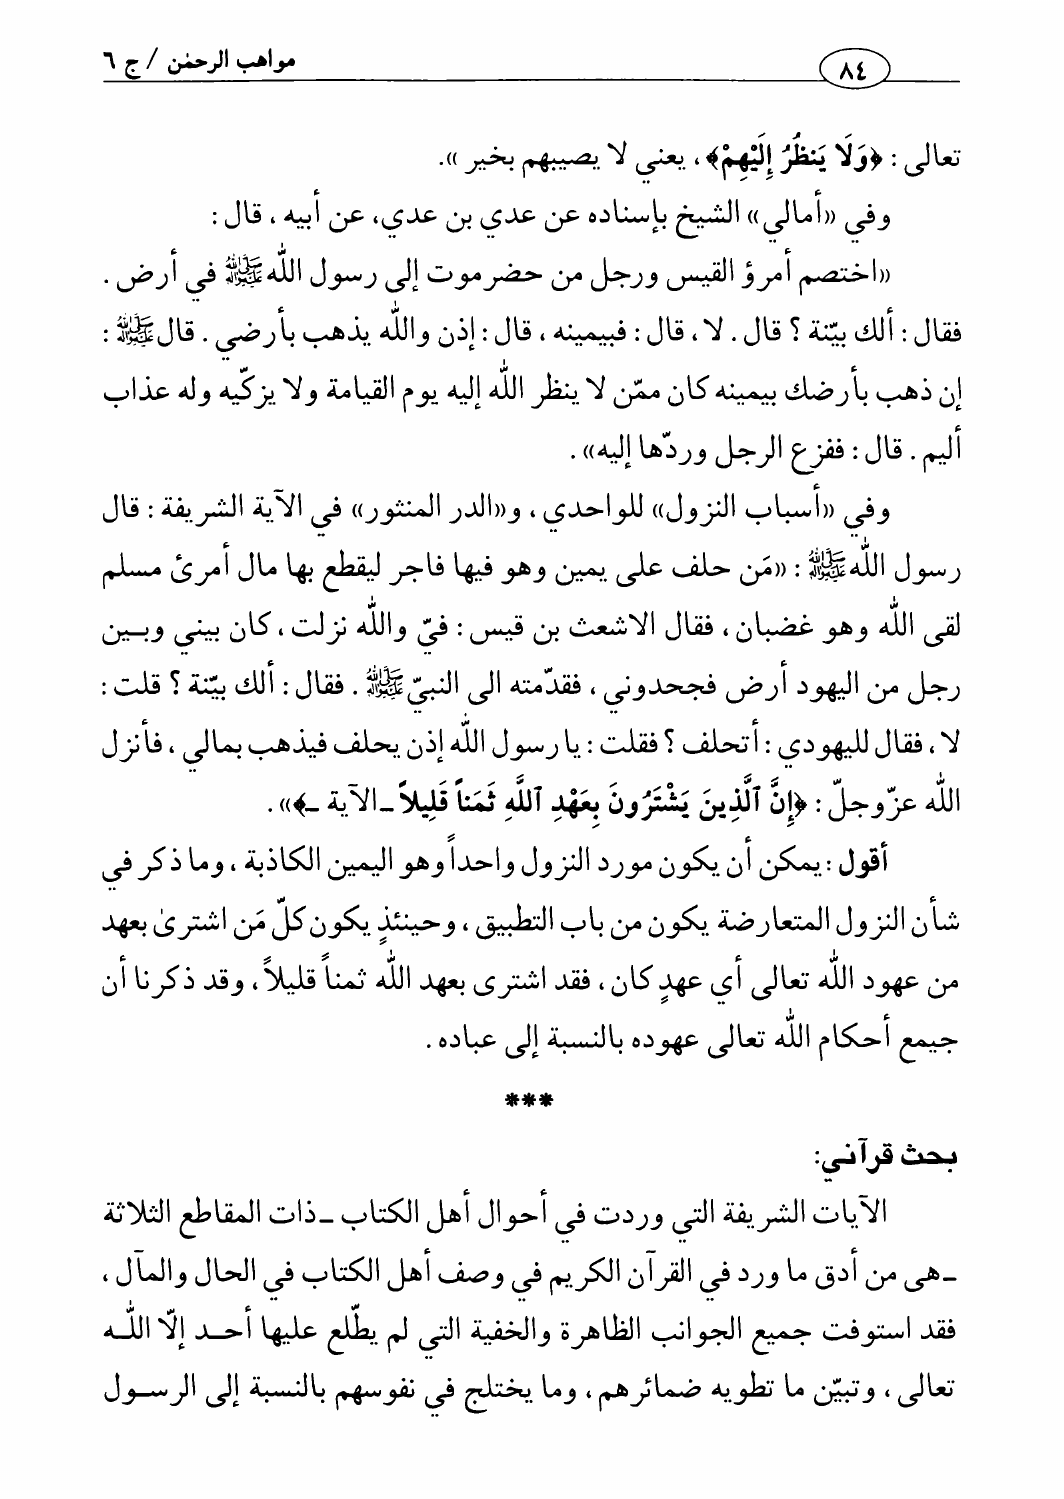 ٨٤
مواهب الرحمٰن / ج ٦
تعالى : ﴿وَلَا يَنظُرُ إِلَيْهِمْ﴾ ، يعني لا يصيبهم بخير » .
وفي «أمالي» الشيخ بإسناده عن عدي بن عدي، عن أبيه ، قال :
«اختصم أمرؤ القيس ورجل من حضرموت إلى رسول اللّه ﷺ في أرض .
فقال : ألك بيّنة ؟ قال . لا ، قال : فبيمينه ، قال : إذن واللّه يذهب بأرضي . قال ﷺ :
إن ذهب بأرضك بيمينه كان ممّن لا ينظر اللّه إليه يوم القيامة ولا يزكّيه وله عذاب
أليم . قال : ففزع الرجل وردّها إليه» .
وفي «أسباب النزول» للواحدي ، و«الدر المنثور» في الآية الشريفة : قال
رسول اللّه ﷺ : «مَن حلف على يمين وهو فيها فاجر ليقطع بها مال أمرئ مسلم
لقى اللّه وهو غضبان ، فقال الاشعث بن قيس : فيّ واللّه نزلت ، كان بيني وبـين
رجل من اليهود أرض فجحدوني ، فقدّمته الى النبيّ ﷺ . فقال : ألك بيّنة ؟ قلت :
لا ، فقال لليهودي : أتحلف ؟ فقلت : يا رسول اللّه إذن يحلف فيذهب بمالي ، فأنزل
اللّه عزّوجلّ : ﴿إِنَّ ٱلَّذِينَ يَشْتَرُونَ بِعَهْدِ ٱللَّهِ ثَمَناً قَلِيلاً ـ الآية ـ﴾» .
أقول : يمكن أن يكون مورد النزول واحداً وهو اليمين الكاذبة ، وما ذكر في
شأن النزول المتعارضة يكون من باب التطبيق ، وحينئذٍ يكون كلّ مَن اشترىٰ بعهد
من عهود اللّه تعالى أي عهدٍ كان ، فقد اشترى بعهد اللّه ثمناً قليلاً ، وقد ذكرنا أن
جيمع أحكام اللّه تعالى عهوده بالنسبة إلى عباده .
***
بحث قرآني:
الآيات الشريفة التي وردت في أحوال أهل الكتاب ـ ذات المقاطع الثلاثة
ـ هى من أدق ما ورد في القرآن الكريم في وصف أهل الكتاب في الحال والمآل ،
فقد استوفت جميع الجوانب الظاهرة والخفية التي لم يطّلع عليها أحـد إلّا اللّـه
تعالى ، وتبيّن ما تطويه ضمائرهم ، وما يختلج في نفوسهم بالنسبة إلى الرسـول